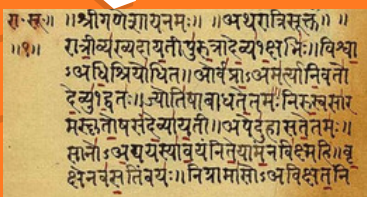 रा॰सू॰ ॥ ॥श्रीगणेशायनमः॥ ॥अथरात्रिसूक्तं॥ ॥
॥१॥ रात्रीव्यख्यदायतीपुरुत्रादेव्य१क्षभिः॥विश्वा
ऽअधिश्रियोधित॥ओर्वप्राऽअमर्त्यानिवतो
देव्यु१द्वतः॥ज्योतिषाबाधतेतमः॥निरुस्वसार
मस्कृतोषसंदेव्यायती॥अपेदुहासतेतमः॥
सानोऽअद्ययस्यावयंनितेयामन्नविक्ष्महि॥वृ
क्षेनवसतिंवयः॥निग्रामासोऽअविक्षतनि